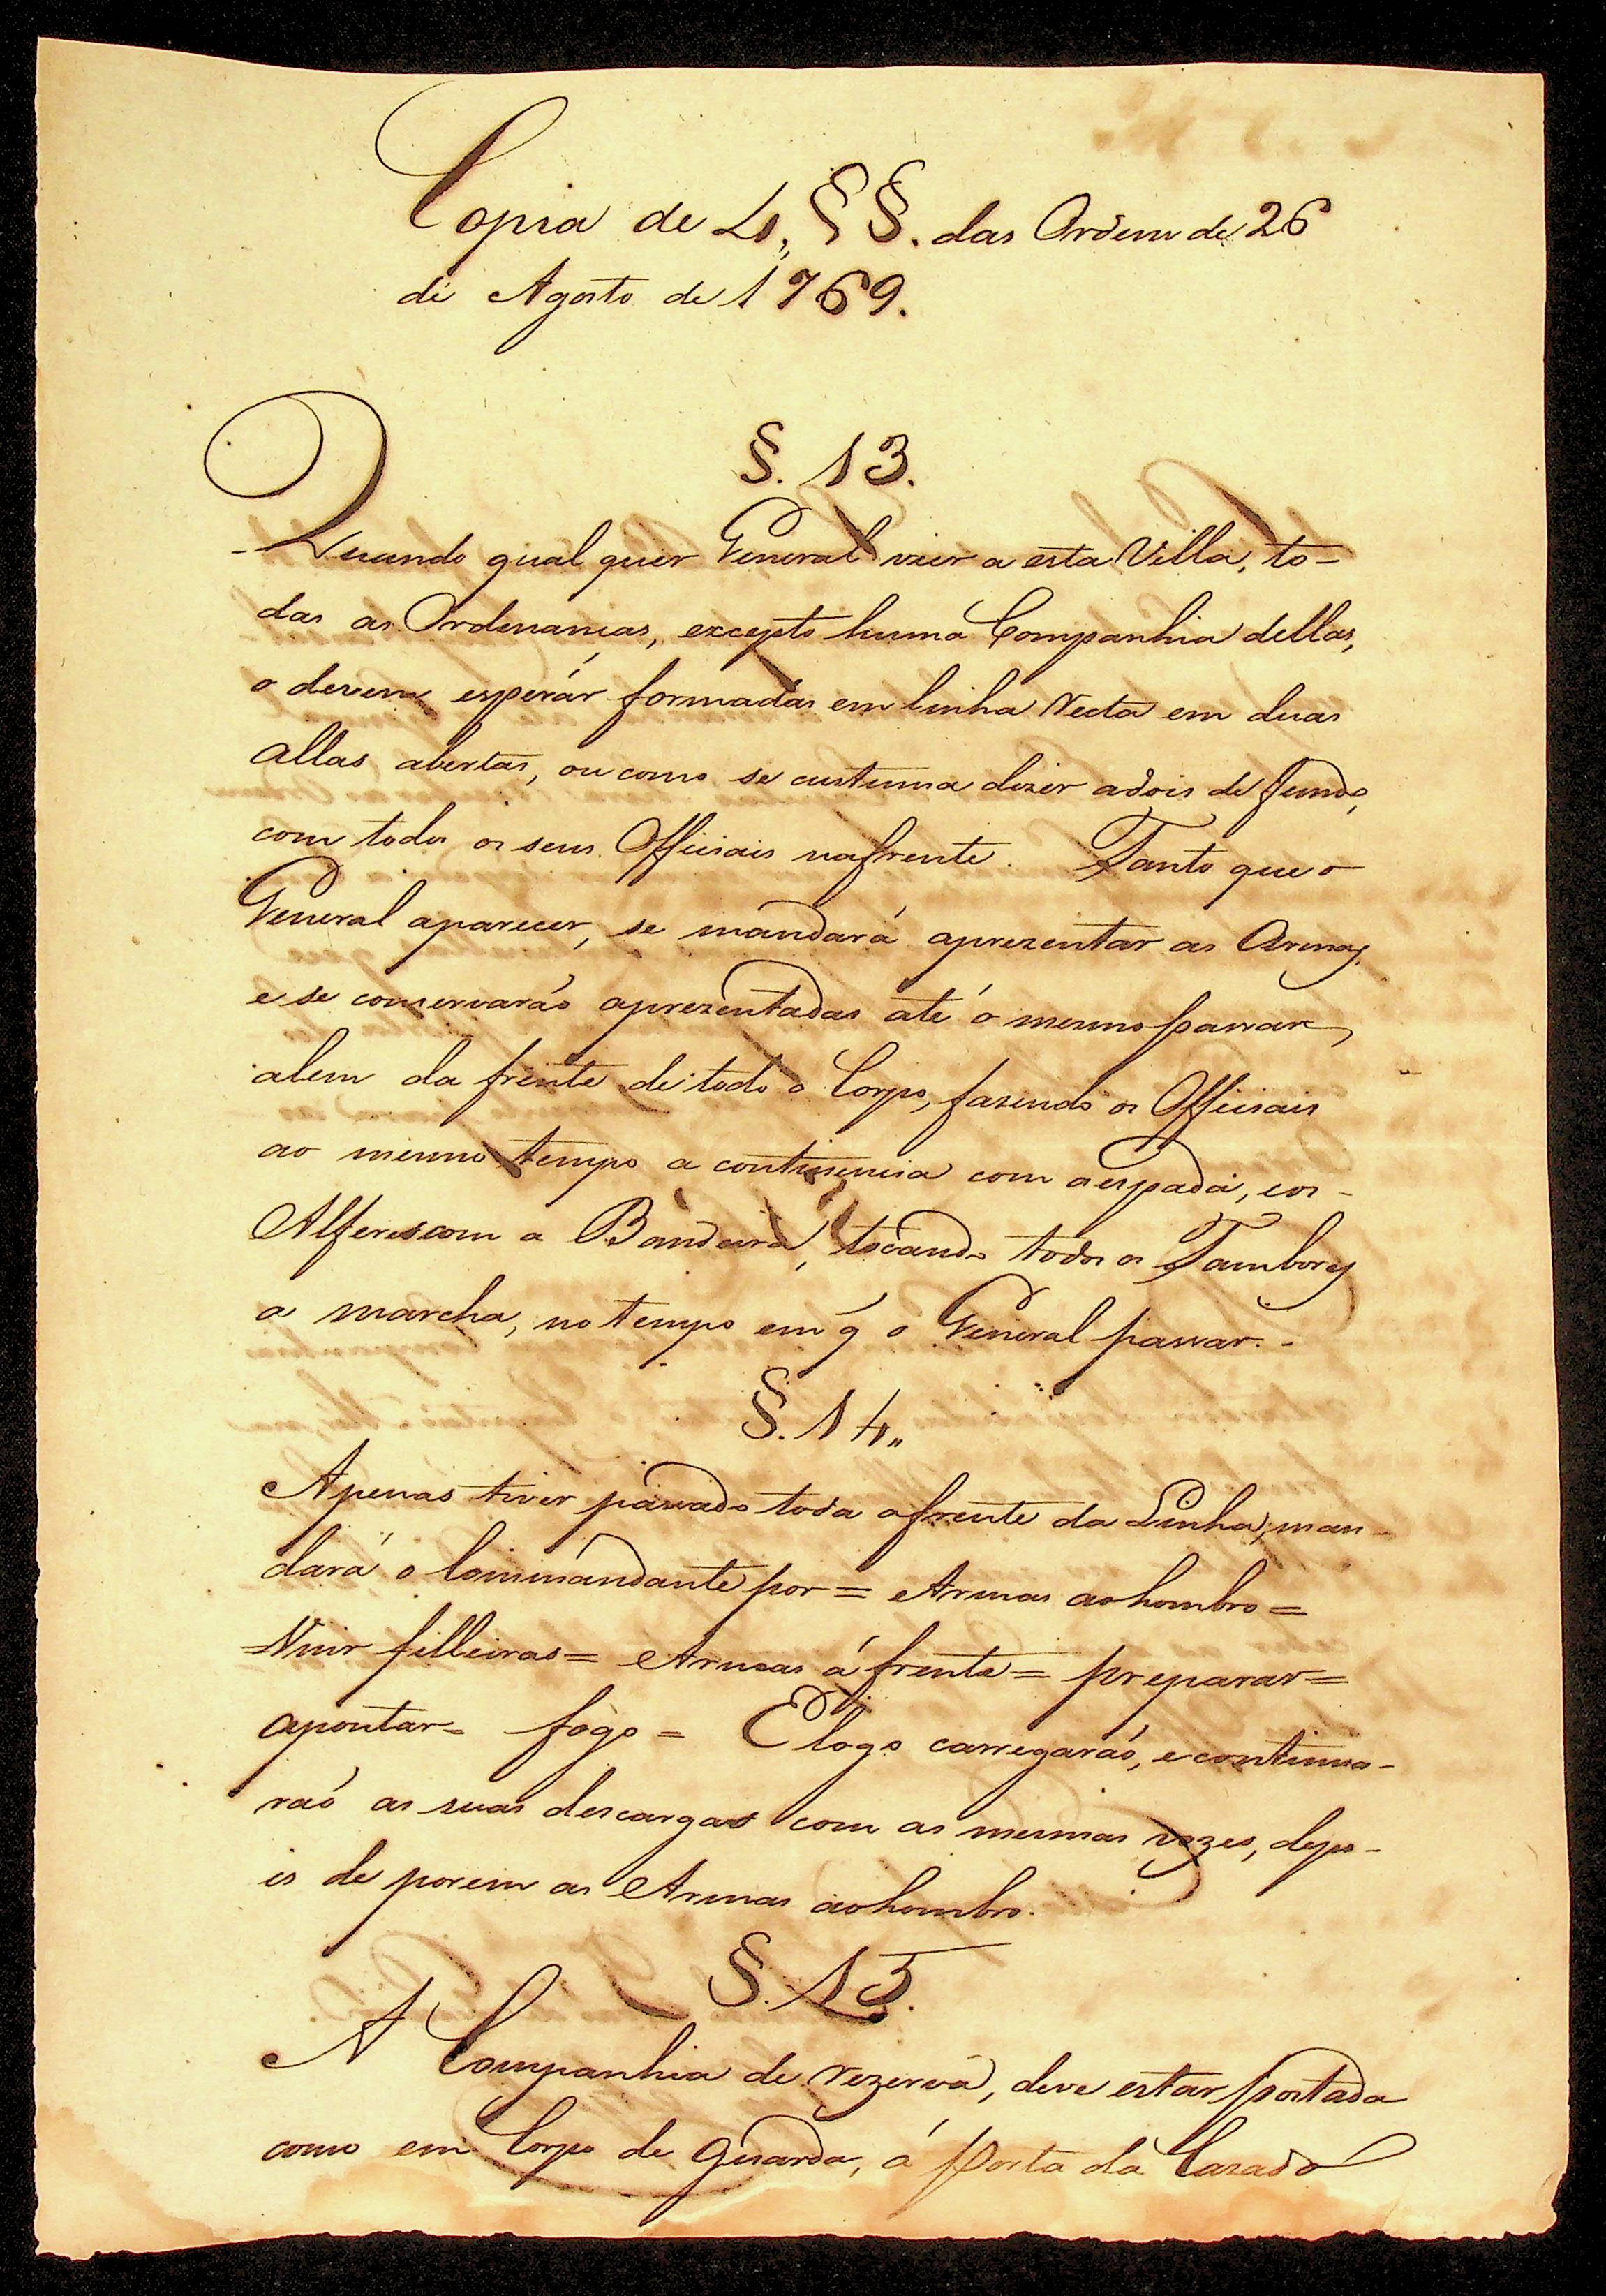 Copia de 4,, §§. das Ordem de 26
de Agosto de 1769.
§. 13.
Quando qual quer General vier a esta Villa, to-
das as Ordenanças, excepto huma Companhia dellas,
o devem esperár formadas em linha recta em duas
allas abertas, ou como se custuma dizer a dois de fundo,
com todos os seus Officiais na frente. Tanto que o
General aparecer, se mandará aprezentar as Armas,
e se conservaráõ aprezentadas até o mesmo passar
alem da frente de todo o Corpo, fazendo os Officiais
ao mesmo tempo a continencia com a espada, e os
Alferes com a Bandeira, tocando todos os Tambores
a marcha, no tempo em q̃ o General passar. -
§. 14,,
Apenas tiver passado toda a frente da Linha, man-
dará o Commandante por = Armas ao hombro =
= Unir filleiras = Armas á frente = preparar =
apontar = fogo = E logo carregaráõ, e continua-
ráõ as suas descargas com as mesmas vozes, depo-
is de porem as Armas ao hombro.
§. 15.
A Companhia de rezerva, deve estar postada
como em Corpo de Guarda, á porta da Caza do